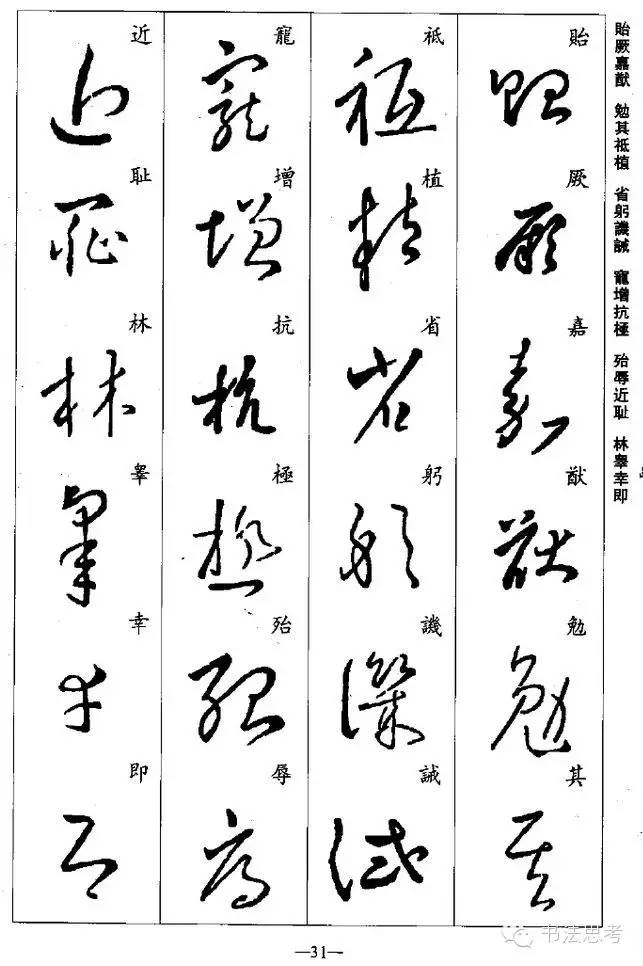 貽厥嘉猷 勉其祗植 省躬譏誡 寵增抗極 殆辱近耻 林睾幸即
貽厥嘉猷勉其
祗植省躬譏誡
寵增抗極殆辱
近耻林睾幸即
—31—
书法思考